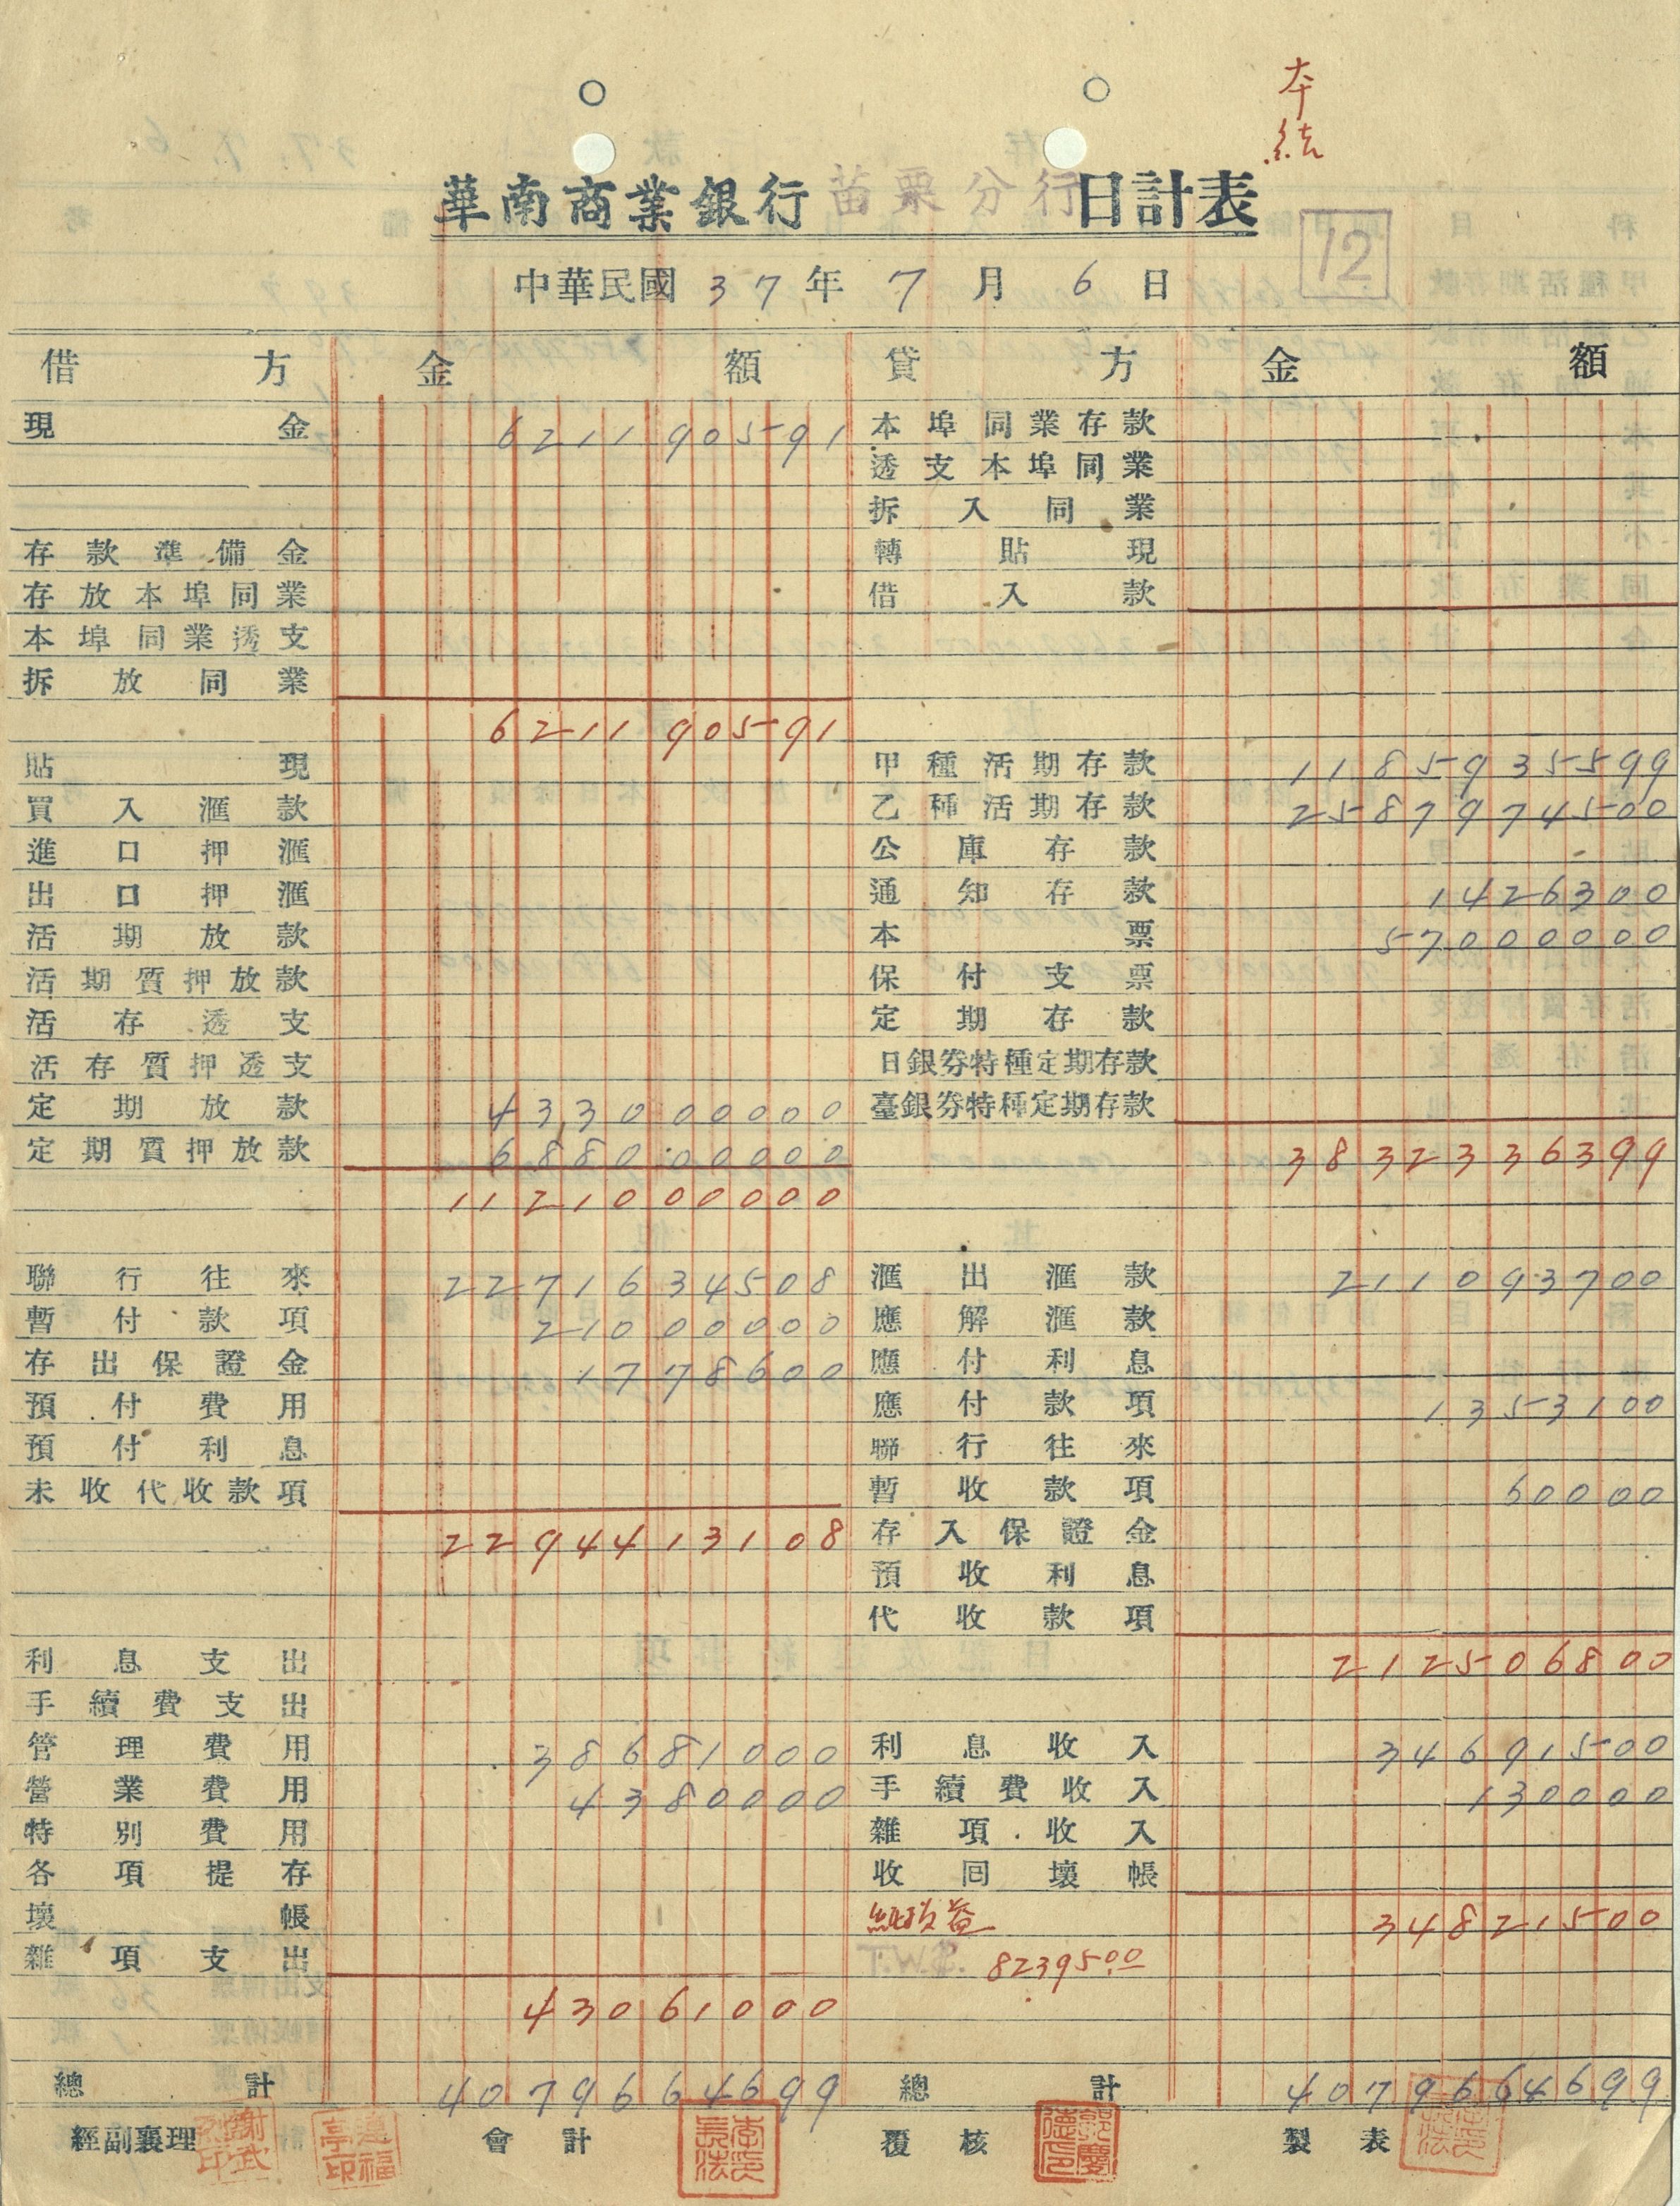 本結
華南商業銀行苗栗分行日計表
12
中華民國37年7月6日
借方 金額 貸方 金額
現金 621190591 本埠同業存款
透支本埠同業
拆入同業
存款準備金 轉貼現
存放本埠同業 借入款
本埠同業透支
拆放同業
621190591
貼現 甲種活期存款 1185935599
買入滙款 乙種活期存款 2587974500
進口押滙 公庫存款
出口押滙 通知存款 1426300
活期放款 本票 57000000
活期質押放款 保付支票
活存透支 定期存款
活存質押透支 日銀券特種定期存款
定期放款 433000000 臺銀券特種定期存款
定期質押放款 688000000 3832336399
1121000000
聯行往來 2271634508 滙出滙款 211093700
暫付款項 21000000 應解滙款
存出保證金 1778600 應付利息
預付費用 應付款項 1353100
預付利息 聯行往來
未收代收款項 暫收款項 60000
2294413108 存入保證金
預收利息
代收款項
利息支出 212506800
手續費支出
管理費用 38681000 利息收入 34691500
營業費用 4380000 手續費收入 130000
特別費用 雜項收入
各項提存 收回壞帳
壞帳 純損益 34821500
雜項支出 T.W.$. 8239500
43061000
總計 4079664699 總計 4079664699
經副襄理 會計 覆核 製表